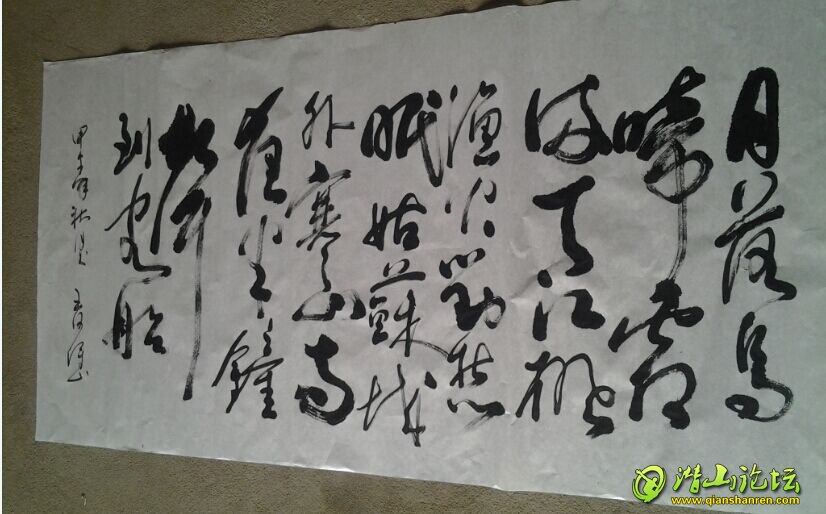 月落烏
啼霜
滿天江楓
漁火對愁
眠姑蘇城
外寒山寺
夜半鐘
聲
到客船
甲午年秋月
潜山论坛
www.qianshanren.com